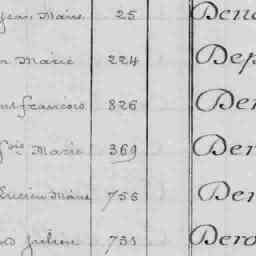 Jean Marie 25 Den
Marie 224 Dep
François 826 Der
Marie 369 Der
Lucien Marie 755 Der
Julien 731 Dero